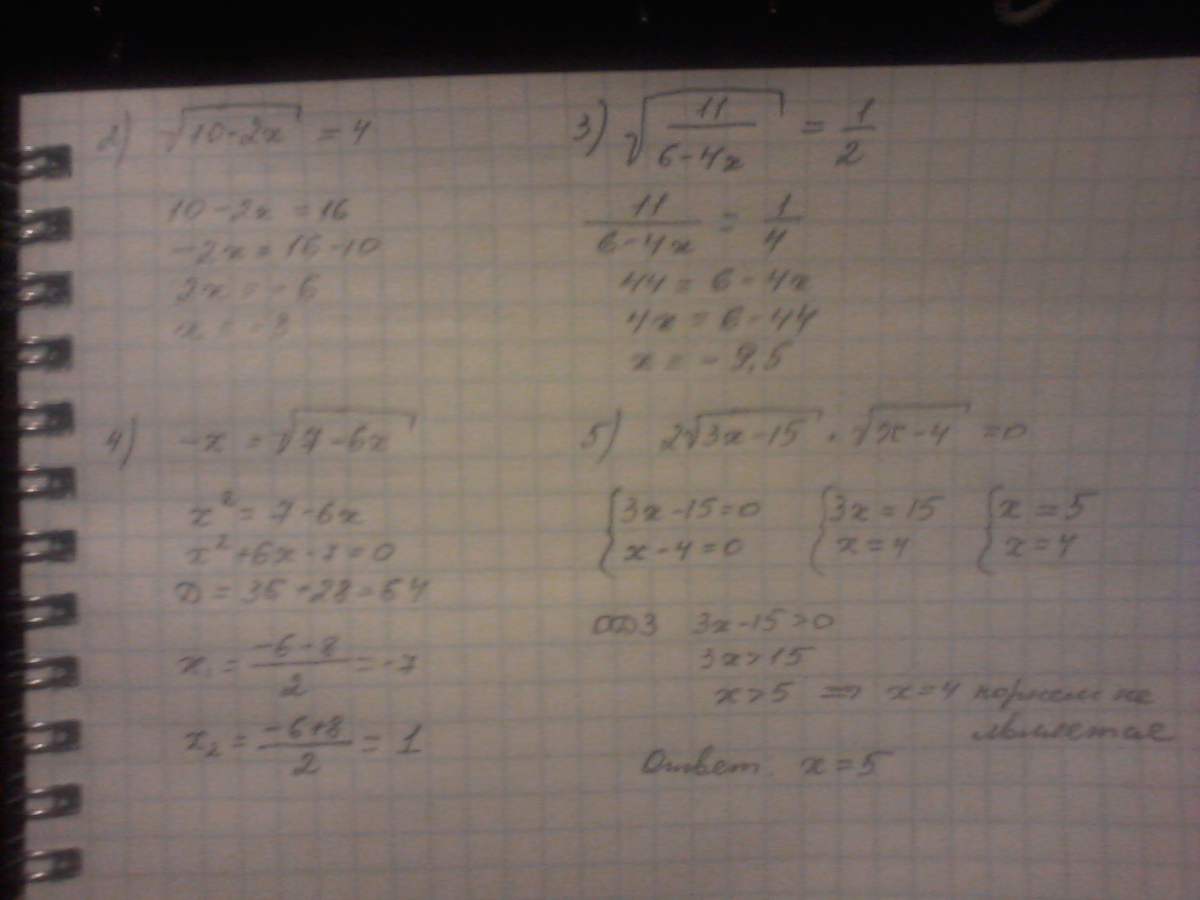 2) √(10-2x) = 4
10-2x = 16
-2x = 16-10
2x = -6
x = -3
3) √(11/(6-4x)) = 1/2
11/(6-4x) = 1/4
44 = 6-4x
4x = 6-44
x = -9,5
4) -x = √(7-6x)
x² = 7-6x
x²+6x-7=0
D = 36+28=64
x₁ = (-6-8)/2 = -7
x₂ = (-6+8)/2 = 1
5) 2√(3x-15) · √(x-4) = 0
{3x-15=0 {3x=15 {x=5
{x-4=0 {x=4 {x=4
ОДЗ 3x-15>0
3x>15
x>5 => x=4 корнем не
является
Ответ. x=5